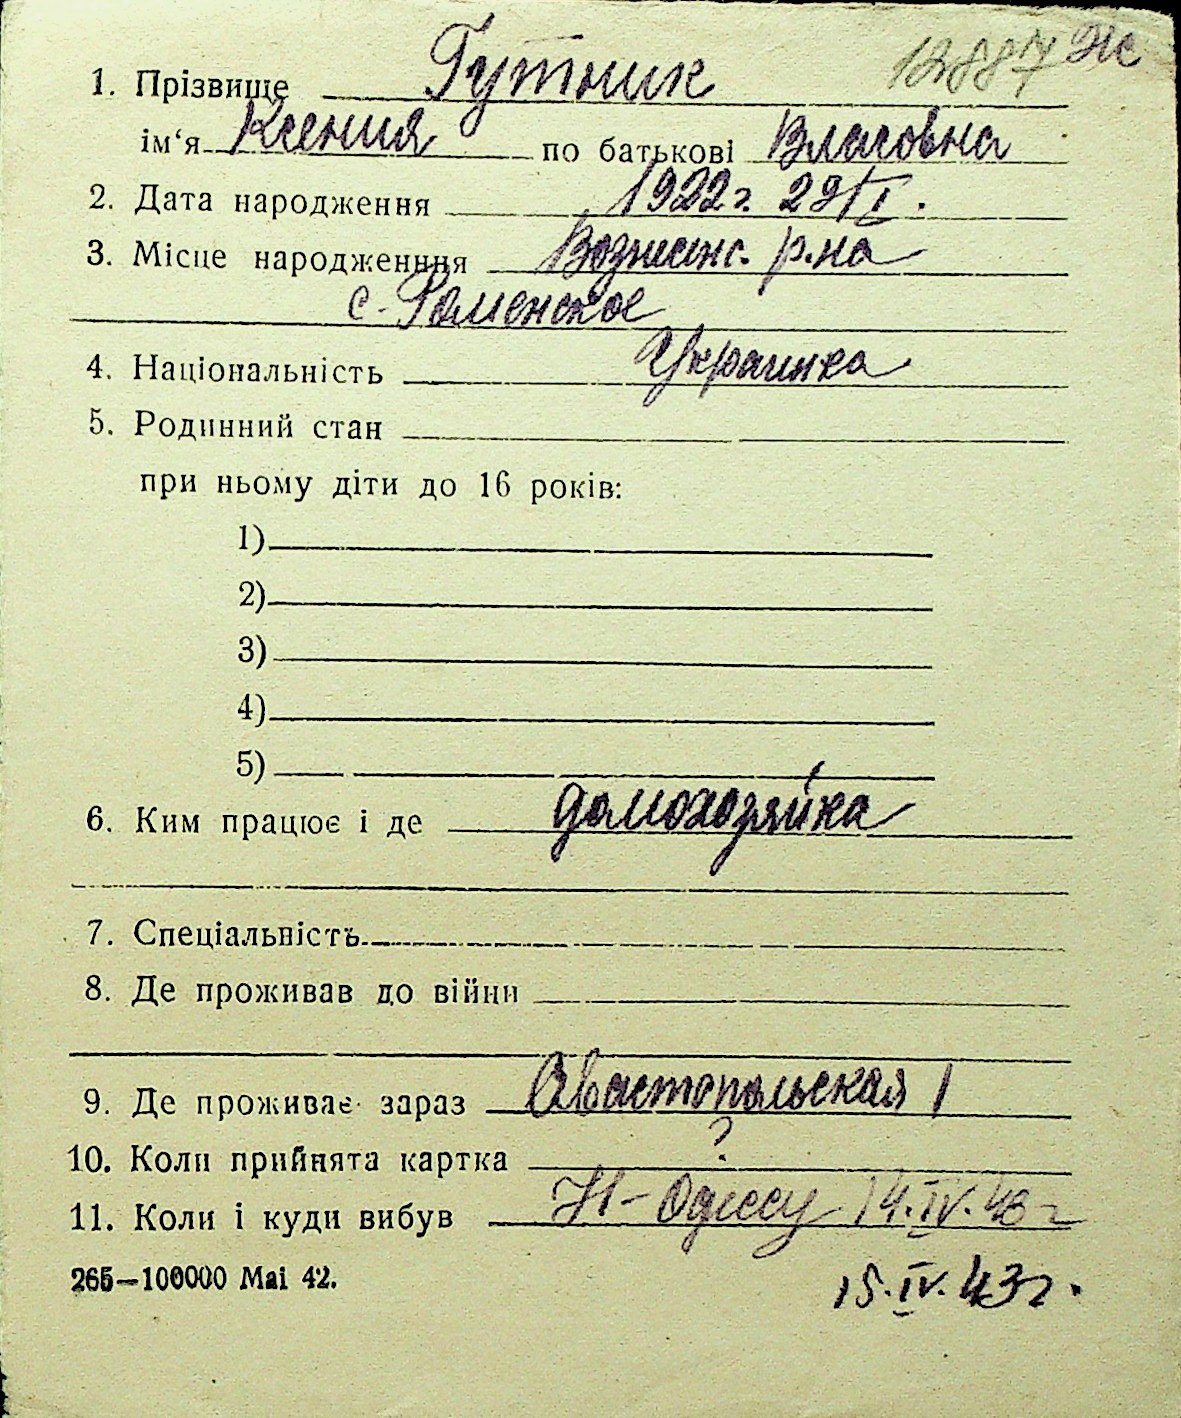 12887 Ж
1. Прізвище Гутник
ім‘я Ксения по батькові Власовна
2. Дата народження 1922 г. 29/I.
3. Місце народженння Вознесенс. р-на
с. Роменское
4. Національність Украинка
5. Родинний стан
при ньому діти до 16 років:
1)
2)
3)
4)
5)
6. Ким працює і де домохозяйка
7. Спеціальність
8. Де проживав до війни
9. Де проживає зараз Севастопольская 1
10. Коли прийнята картка ?
11. Коли і куди вибув Н-Одессу 14.IV.43 г
265—100000 Mai 42.
15.IV.43 г.